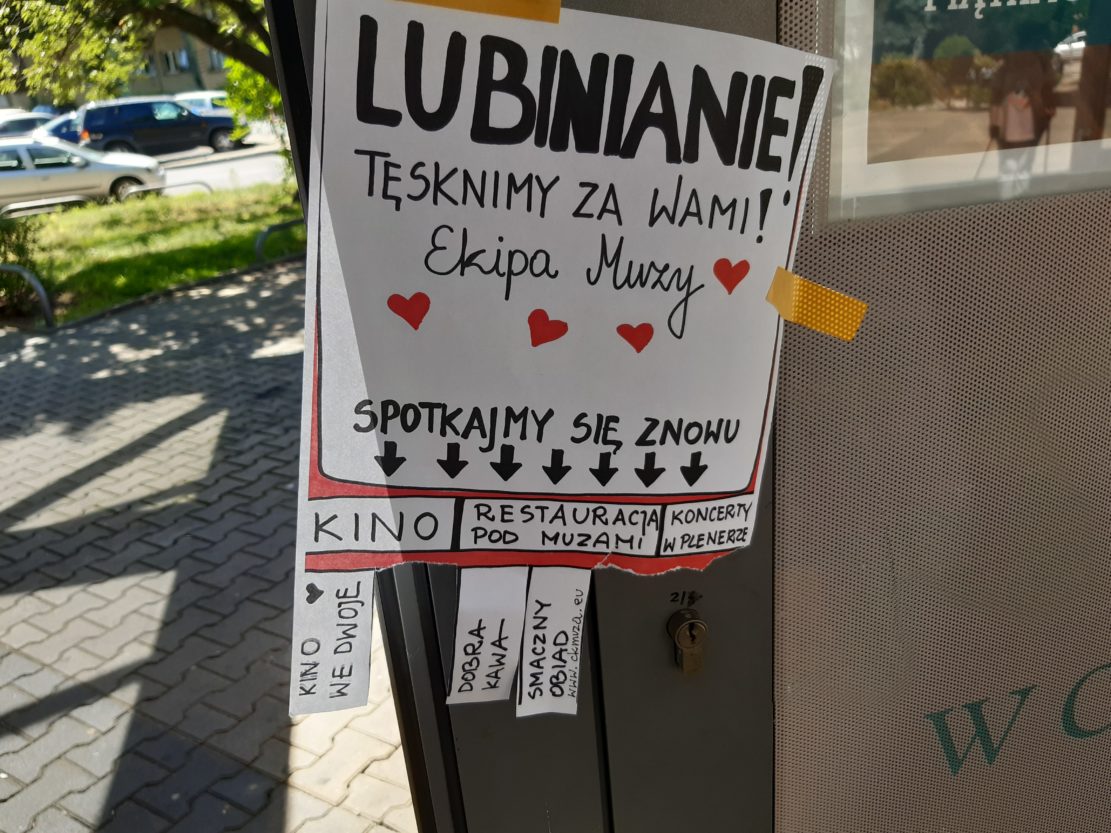 LUBINIANIE!
TĘSKNIMY ZA WAMI!
Ekipa Muzy
SPOTKAJMY SIĘ ZNOWU
KINO
RESTAURACJA
POD MUZAMI
KONCERTY
W PLENERZE
KINO
WE DWOJE
DOBRA
KAWA
SMACZNY
OBIAD
www.ckmuza.eu